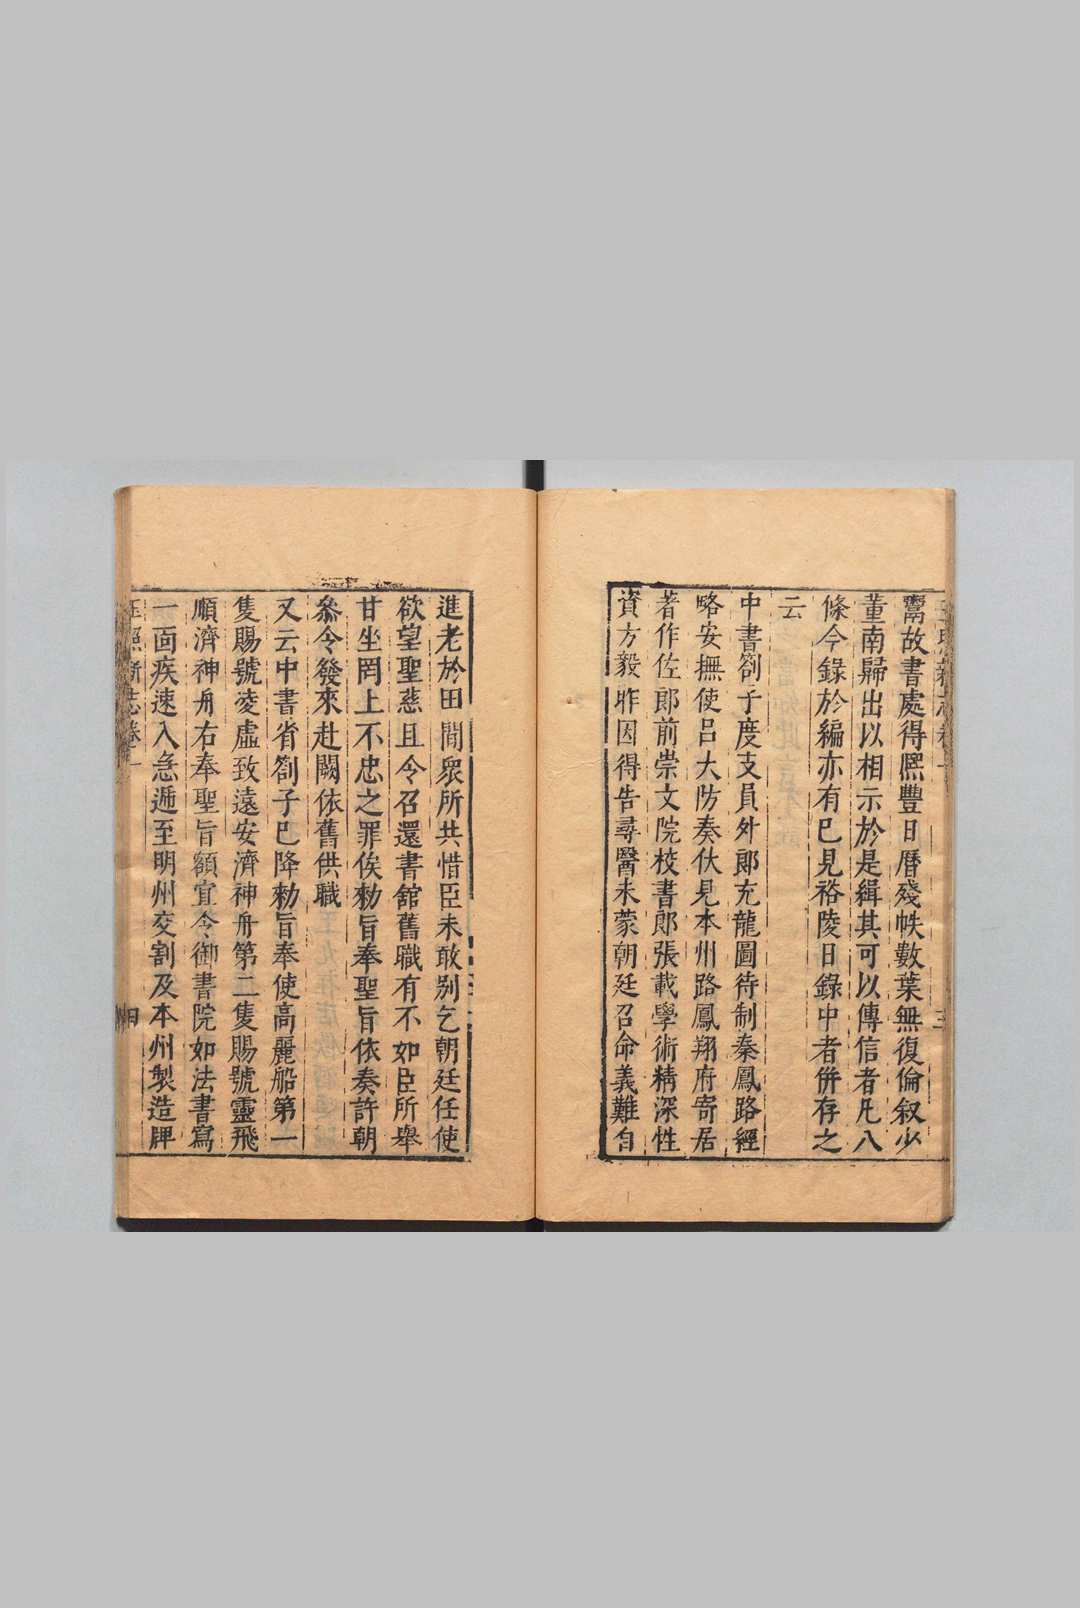 鬻故書處得熈豐日曆殘帙數葉無復倫叙少
董南歸出以相示於是緝其可以傳信者凡八
條今錄於編亦有已見裕陵日錄中者併存之
云
中書劄子度支員外郎充龍圖待制秦鳳路經
略安撫使呂大防奏伏見本州路鳳翔府寄居
著作佐郎前崇文院校書郎張載學術精深性
資方毅昨因得告尋醫未蒙朝廷召命義難自
進老於田間衆所共惜臣未敢别乞朝廷任使
欲望聖慈且令召還書舘舊職有不如臣所舉
甘坐罔上不忠之罪俟勑旨奉聖旨依奏許朝
叅令發來赴闕依舊供職
又云中書省劄子已降勑旨奉使高麗船第一
隻賜號凌虛致遠安濟神舟第二隻賜號靈飛
順濟神舟右奉聖旨額宜令御書院如法書寫
一面疾速入急逓至明州交割及本州製造牌
玉照新志卷一
四